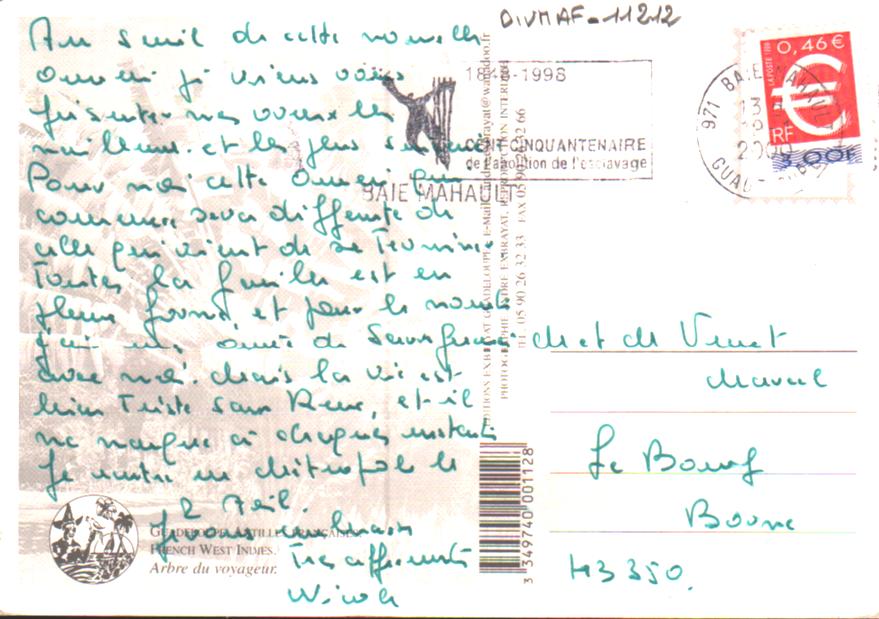 DIVMAF-11212
Au seuil de cette nouvelle
année je viens vous
présenter mes voeux les
meilleurs et les plus sincères
Pour moi cette année qui
commence sera différente de
celle qui vient de se terminer
Toutes la famille est en
pleine forme, et pour le moment
j'ai
avec moi. Mais la vie est
bien triste sans et il
me manque à chaques instants
Je rentre en Métropole le
2 Avril.
Je vous embrasse
Très affectueusement
1848-1998
CENT CINQUANTENAIRE
de l'abolition de l'esclavage
BAIE MAHAULT
971 BAIE MAHAULT
13
2000
GUADELOUPE
0,46 €
LA POSTE 1999
€
RF
3,00F
M et Me
Le Bourg
43350.
ÉDITIONS EXBRAYAT GUADELOUPE - E-Mail: andre.exbrayat@wanadoo.fr
PHOTOGRAPHIE ANDRÉ EXBRAYAT, REPRODUCTION INTERDITE
TEL 05 90 26 32 33 FAX 05 90 26 32 66
3 349740 001128
GUADELOUPE ANTILLES FRANÇAISES.
FRENCH WEST INDIES.
Arbre du voyageur.